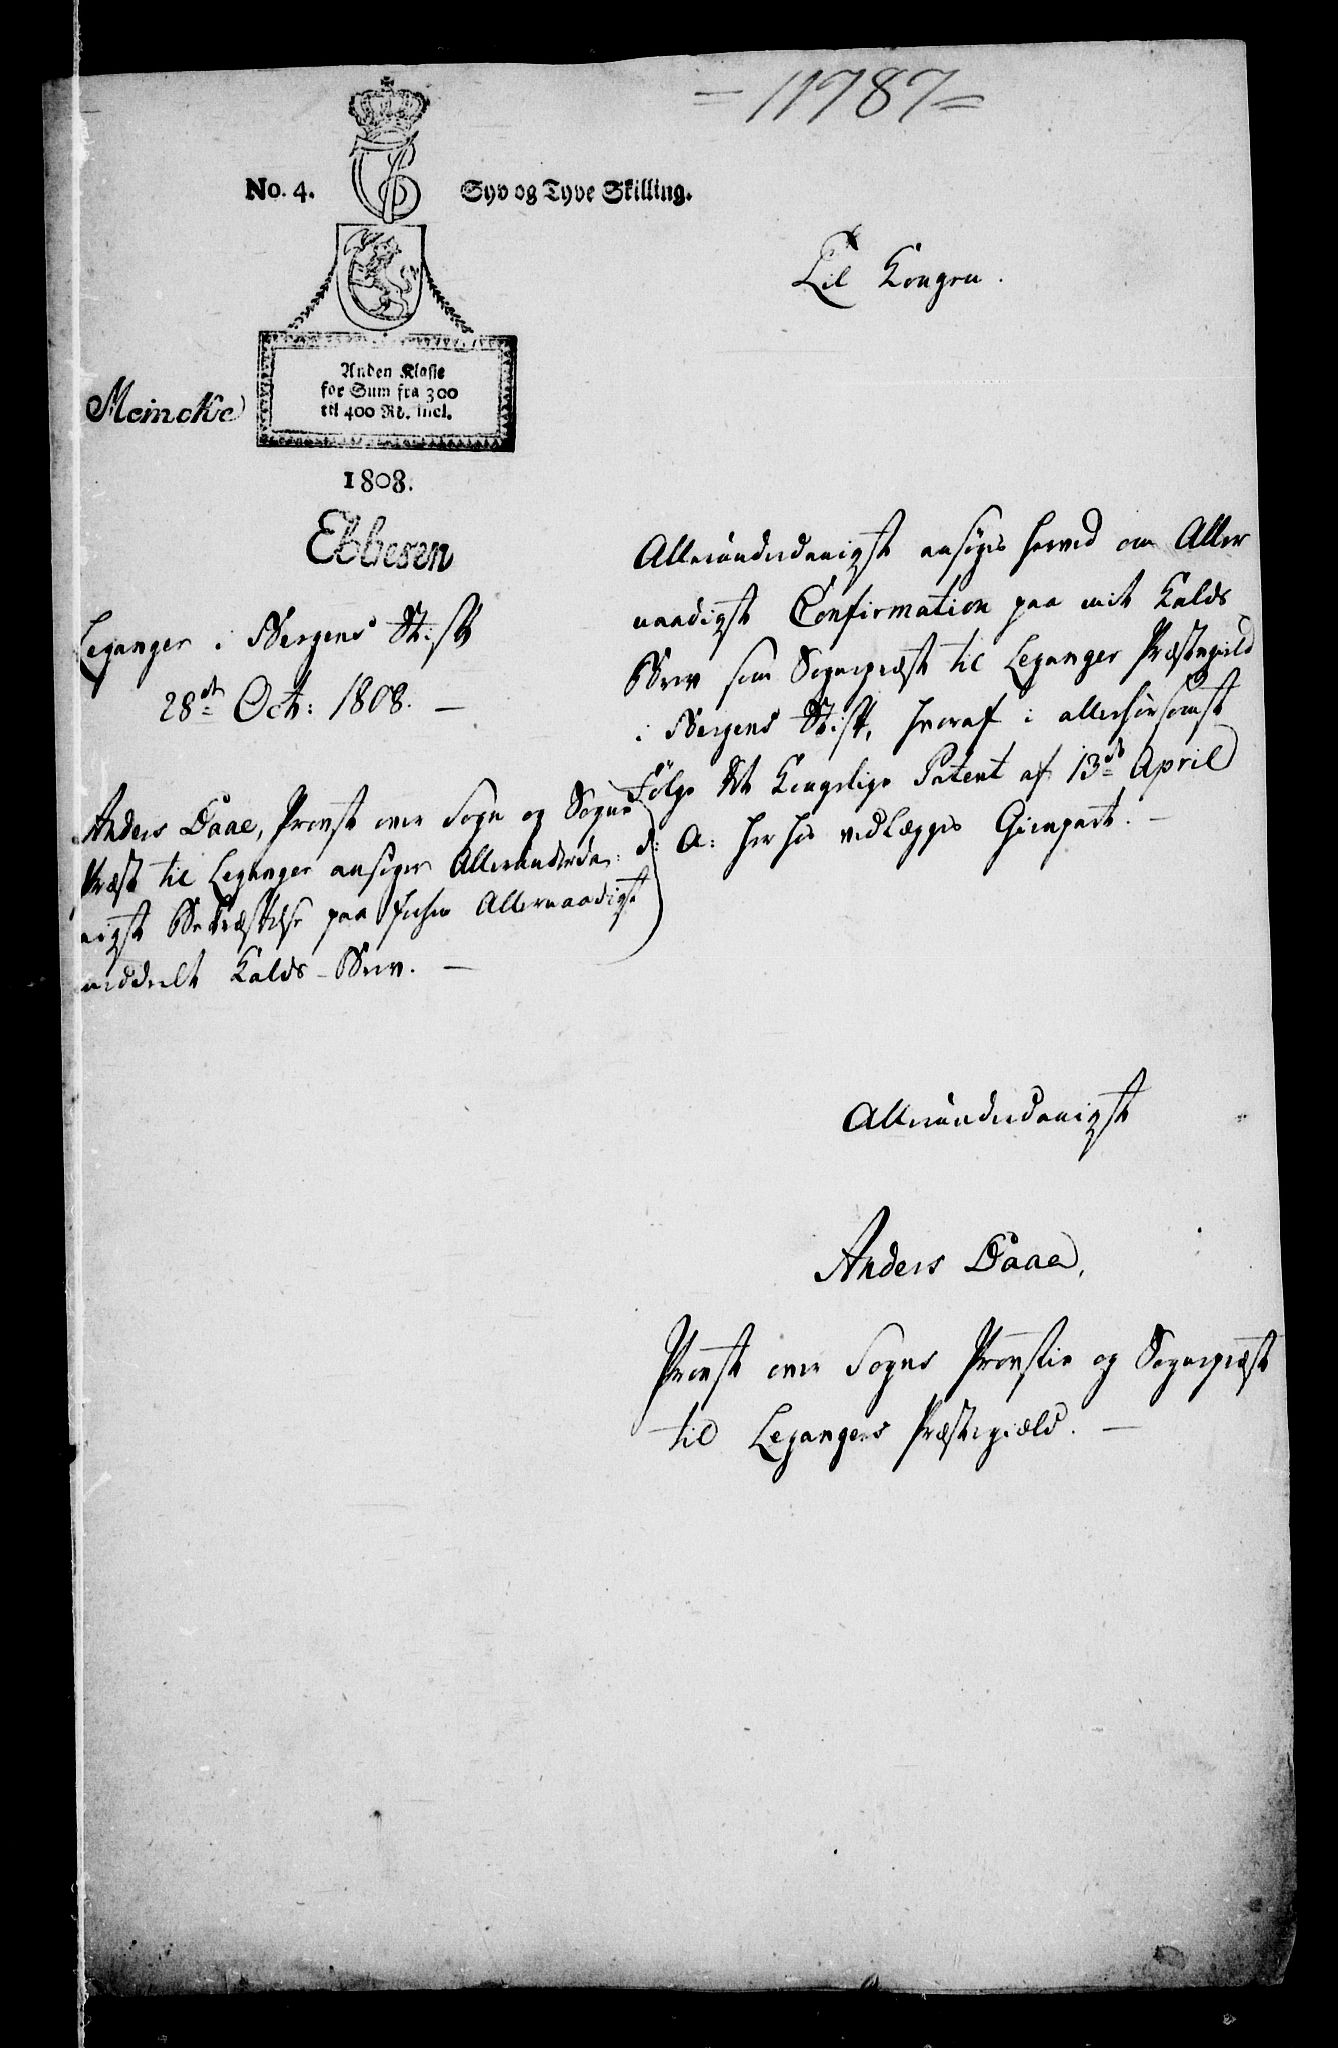 = 11787 =
No. 4.
Syv og Tyve Skilling.
Anden Klasse
for Sum fra 300
til 400 Rd. incl.
Meincke
1808.
Ebbesen
Til Kongen.
Leganger i Bergens Stift
28de Oct: 1808. —
Anders Daae, Provst over Sogn og Sogne
Præst til Leganger ansøger Allerunderda-
nigst Bekræftelse paa sit Allernaadigst
meddeelt Kalds-Brev. —
Allerunderdanigst ansøges herved om Aller
naadigst Confirmation paa mit Kalds
Brev som Sognepræst til Leganger Præstegield
i Bergens Stift, hvoraf i allerhøieste
Følge det Kongelige Patent af 13de April
d: A: herhos vedlægges Gienpart. —
Allerunderdanigst
Anders Daae,
Provst over Sogns Provstie og Sognepræst
til Legangers Præstegield. —